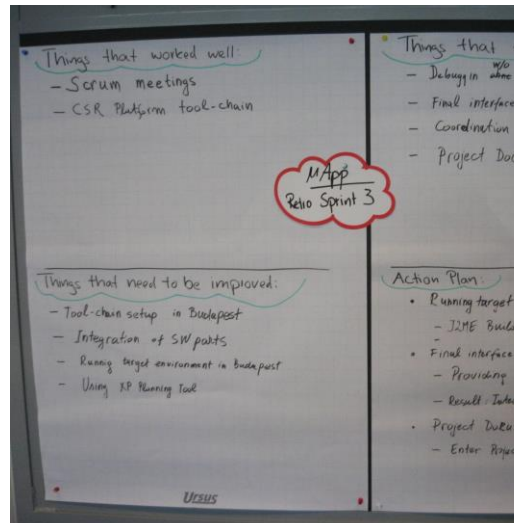 Things that worked well:
- Scrum meetings
- CSR Platform tool-chain
Things that need to be improved:
- Tool-chain setup in Budapest
- Integration of SW parts
- Runnig target environment in Budapest
- Using XP Planning Tool
µApp
Retro Sprint 3
Things that
- Debuggin w/o
- Final interface
- Coordination
- Project Doc
Action Plan:
• Running target
- J2ME Build
• Final interface
- Providing
- Result: Inte
• Project Doku
- Enter Proje
Ursus